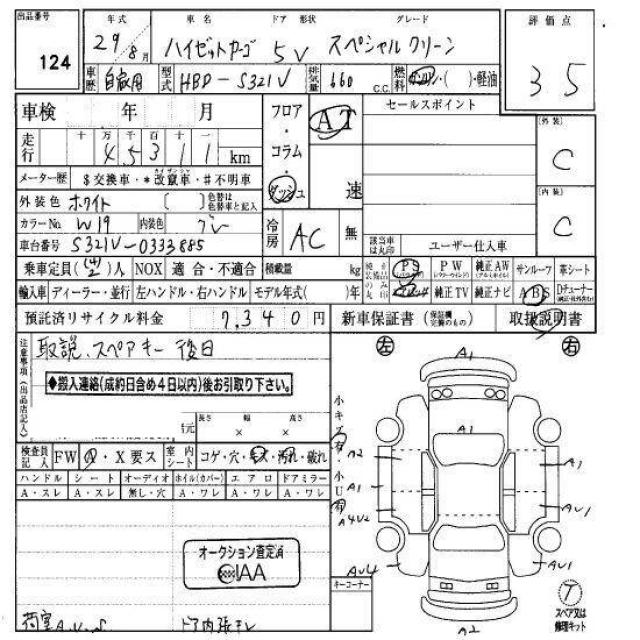 出品番号 年式 車名 ドア 形状 グレード 評価点
124 29年8月 ハイゼットカーゴ 5V スペシャルクリーン 35
車歴 自家用 型式 HBD-S321V 排気量 660 C.C. 燃料 ガソリン・( )・軽油
車検 年 月 フロア・コラム・ダッシュ AT 速 セールスポイント
走行 十万千百十一 45311 km
(外装) C
メーター歴 $交換車・*改竄車・#不明車
外装色 ホワイト ( ) 色替は色替車と記入
(内装) C
カラーNo W19 内装色 グレー 冷房 AC 無
車台番号 S321V-0333885 該当車は丸印 ユーザー仕入車
乗車定員(4/2)人 NOX 適合・不適合 積載量 kg PS PW 純正AW サンルーフ 革シート
輸入車 ディーラー・並行 左ハンドル・右ハンドル モデル年式( )年 純正TV 純正ナビ ABS Dチューナー
預託済リサイクル料金 7,340円 新車保証書 (保証記載完備のもの) 取扱説明書
注意事項(出品店記入)
取説、スペアキー 後日
◆搬入連絡(成約日含め4日以内)後お引取り下さい。
長さ 幅 高さ
元 × ×
検査員記入 FW A・X要ス 室内シート コゲ・穴・キズ・汚れ・破れ
ハンドル シート オーディオ ホイル(カバー) エアロ ドアミラー
A・スレ A・スレ 無し・穴 A・ワレ A・ワレ A・ワレ
オークション査定済
IAA
荷室A.U.S ドア内張キレ
左 右
小キズ有
小U有
A1
A1
A2 A1
A1
A4U2 AU1
AU4 AU1
A2
キーコーナー
T
スペア又は修理キット